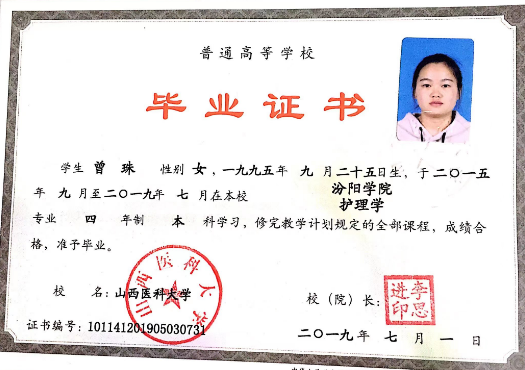 普通高等学校
毕业证书
学生 曾 珠 性别 女，一九九五年 九 月二十五日生，于二〇一五
年 九 月至二〇一九年 七 月在本校 汾阳学院
护理学
专业 四 年制 本 科学习，修完教学计划规定的全部课程，成绩合
格，准予毕业。
校 名：山西医科大学
山西医科大学
校（院）长：
李思进印
证书编号：101141201905030731
二〇一九年 七 月 一 日